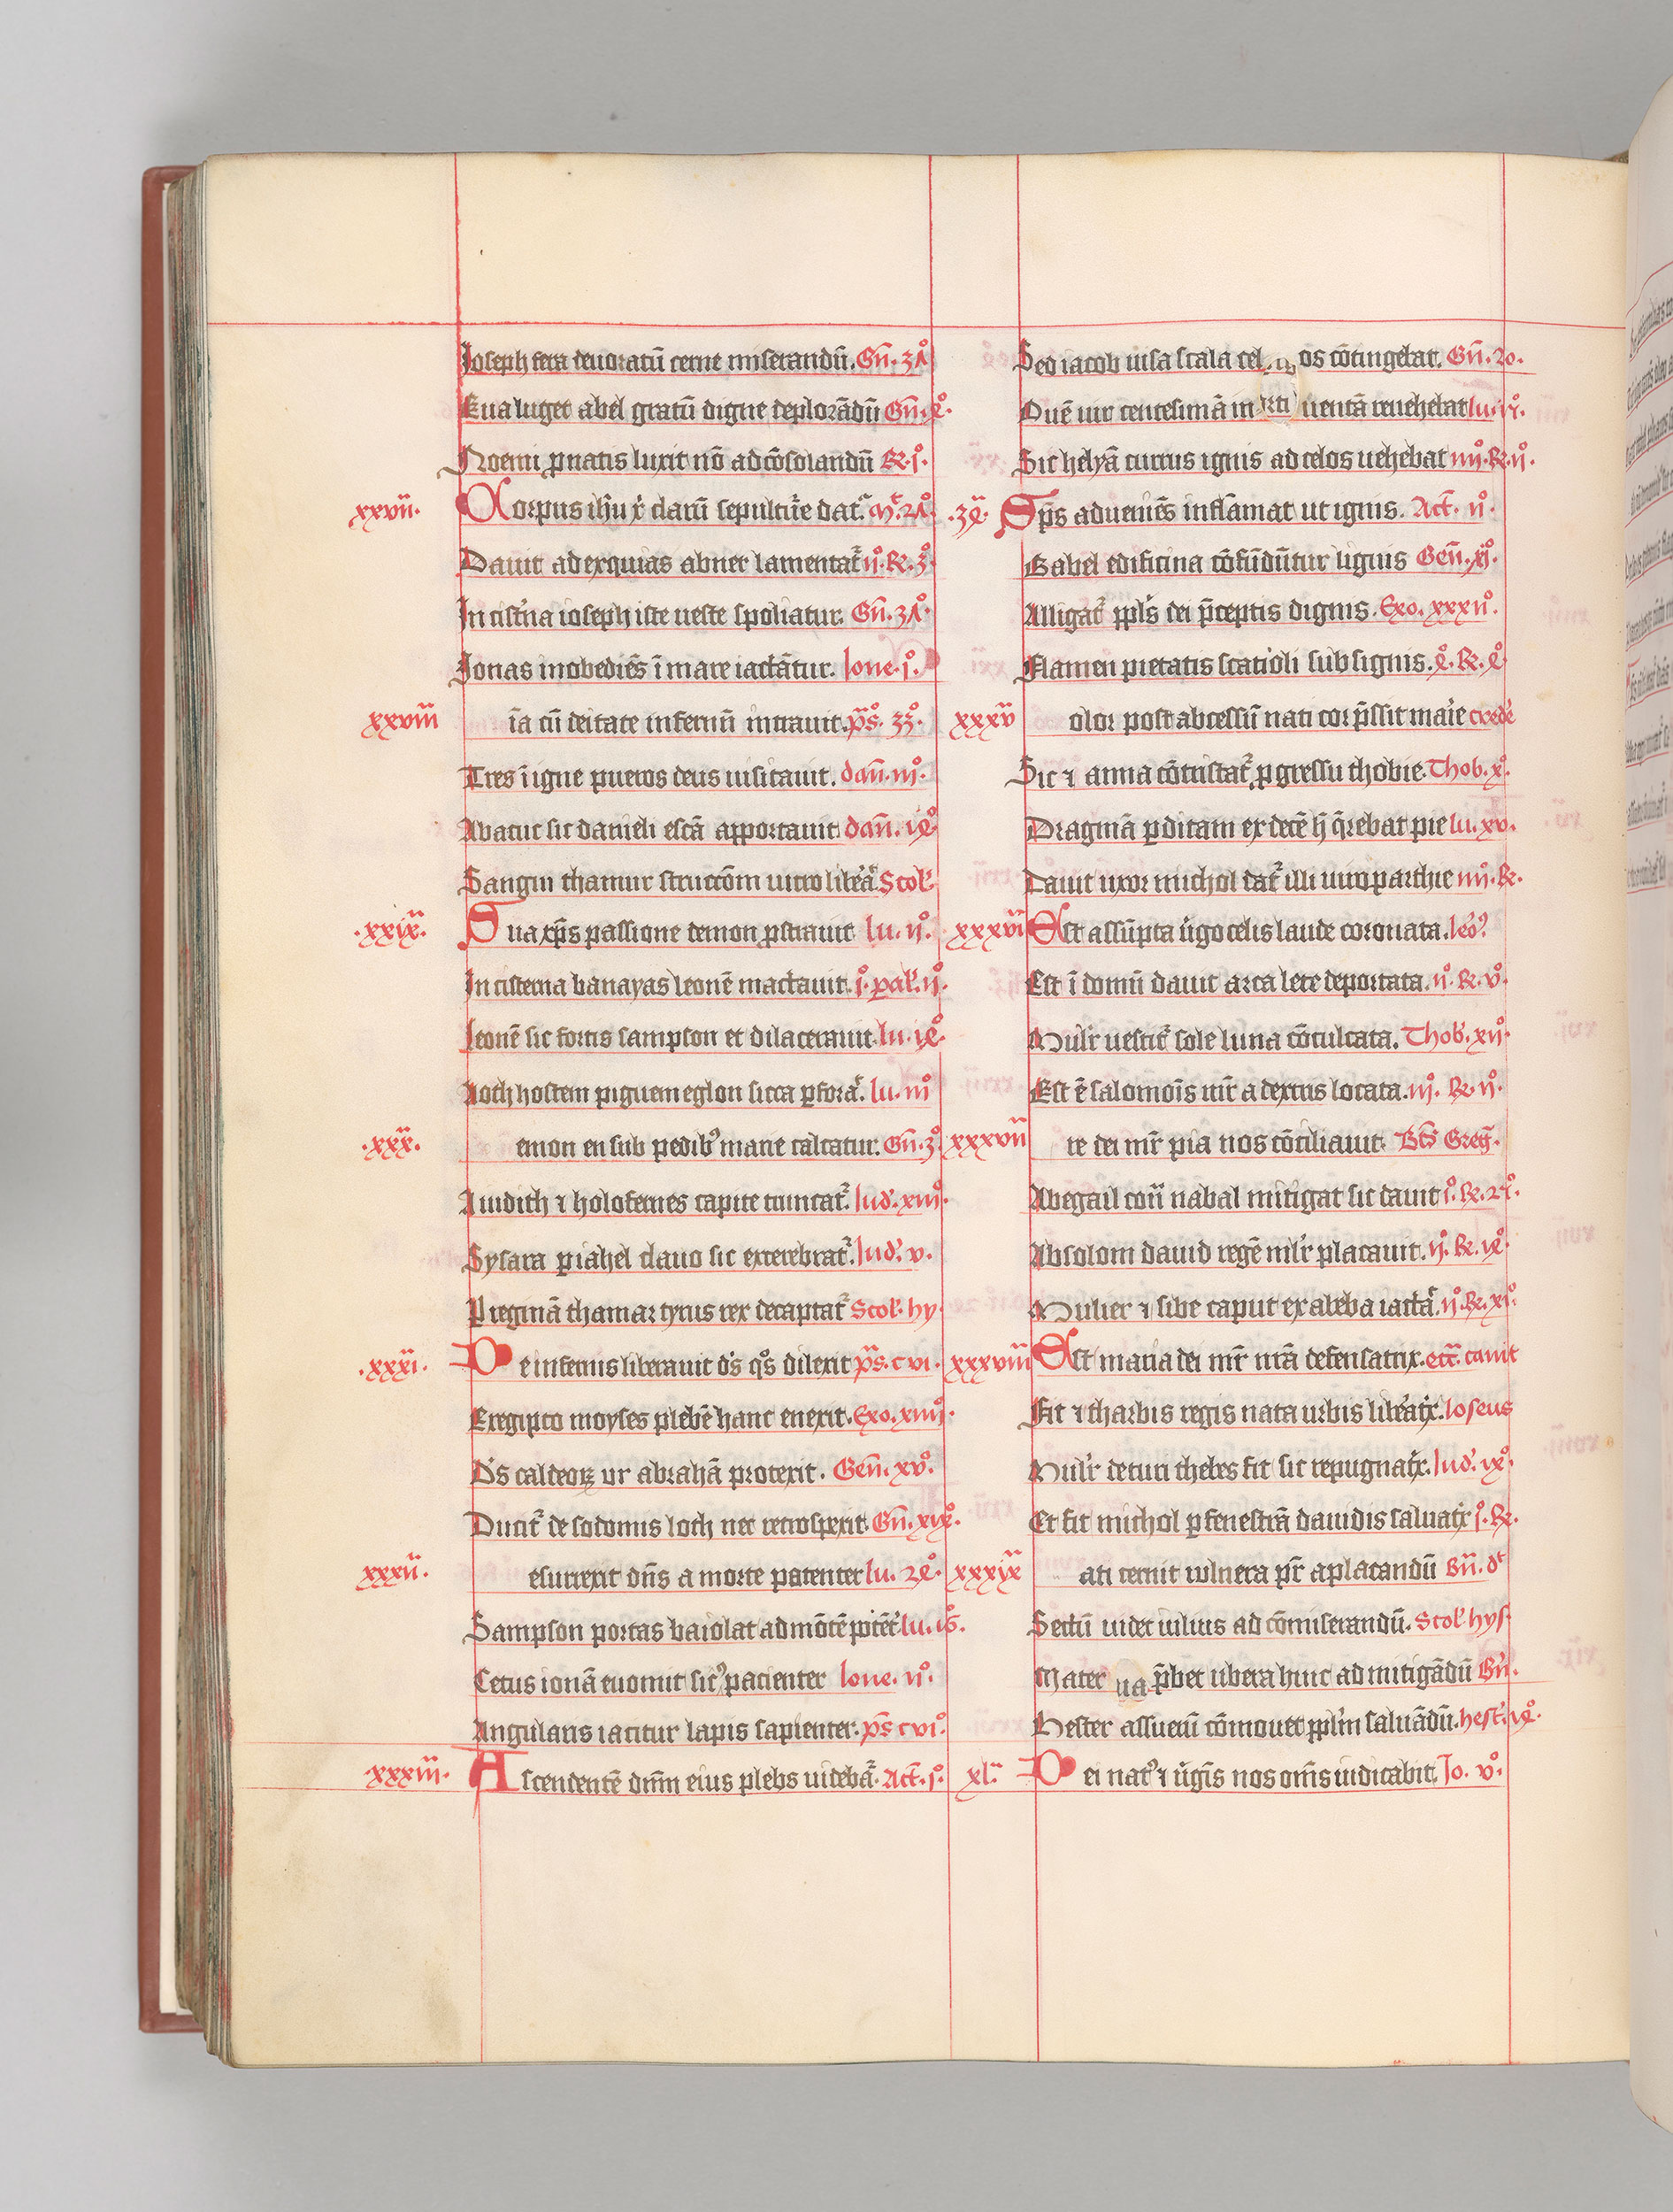 Ioseph fera deuoratū cerne miserandū. Gn̄. 37°
Eua luget abel gratū digne deplorādū Gn̄. 4°.
Noemi ꝓ natis luxit nō ad cōsolandū R. i°.
xxvii. Corpus ih̄u xp̄i clarū sepulture dat᷑
Dauit ad exquias abner lamentat᷑ ii°. R. 3°.
In cist̄na ioseph iste ueste spoliatur. Gn̄. 37.
Ionas inobediēs ī mare iactātur. Ione. i°.
xxviii īa cū deitate infernū intrauit. ps̄.
Tres ī igne pueros deus uisitauit. dan̄. iii°.
Abacuc sic danieli escā apportauit dan̄. 14°
Sangui thamur structōm uitro libeat᷑ Scol.
.xxix. Sua xp̄s passione demon ꝓstrauit lu. ii°.
In cisterna banayas leonē mactauit. i°. ꝑal. ii°.
Leonē sic fortis sampson et dilacerauit. Iu. 14°.
Aoth hostem piguem eglon sicca ꝑforat᷑. Iu. iii°
.xxx. emon en sub pedibꝰ marie calcatur. Gn̄. 3°.
A iudith ⁊ holofernes capite truncat᷑. Iud. xiii°.
Sysara ꝑ iahel clauo sic excerebrat᷑. Iud. v.
P reginā thamar tyrus rex decaptat᷑ Scol. hy.
.xxxi. De infernis liberauit ds̄ qͦs dilexit ps̄. c vi.
Ex egipto moyses plebē hanc enexit. Exo. xiiii°.
Ds̄ caldeoꝝ ur abrahā protexit. Gen̄. xv°.
Ducit᷑ de sodomis loth nec retrospexit. Gn̄. xix°.
xxxii. esurrexit dn̄s a morte patenter lu. 24°.
Sampson portas baiolat ad mōtē potēt᷑ Iu. 16.
Cetus ionā euomit sicꝰ pacienter Ione. ii°.
Angularis iacitur lapis sapienter. ps̄ c vi°.
.xxxiii. Ascendentē dn̄m eius plebs uidebat᷑. Act. i°.
Sed iacob uisa scala cel os cōtingebat. Gn̄. 20.
Ouē uir centesimā in uentā reuehebat lu.
Sic helyā currus ignis ad celos uehebat iiii. R. ii°.
.34. Sp̄s adueniēs inflāmat ut ignis. Act. ii°.
Babel edificina cōfūdūtur lignis Gen̄. xi°.
Alligat᷑ ppl̄s dei p̄ceptis dignis. Exo. xxxii°.
Flamen pietatis scatioli sub signis. 4°. R. 4°
xxxv olor post abcessū nati cor p̄ssit marie crede
Sic ⁊ anna cōtristat᷑ ꝓgressu thobie. Thob. x°.
Dragmā ꝑditam ex decē h̄ q̄rebat pie lu. xv.
Dauit uxor michol dat᷑ illi uiro parthie iiii°. R.
xxxvi Est assūpta ūgo celis laude coronata. leo.
Est ī domū dauit arca lete deportata. ii°. R. v°.
Mulʼr uestit᷑ sole luna cōculcata. Thob. xii°.
Est ē salomoīs mr̄ a dextris locata. iii. R. ii°.
xxxvii te dei mr̄ pia nos cōciliauit. Bt̄s Greg.
Abegail coru nabal mitigat sic dauit i°. R.
Absolom dauid regē mlʼr placauit. ii°. R. 14°.
Mulier ⁊ sibe caput ex abeba iactat᷑. ii°. R. xi°.
xxxviii Est maria dei mr̄ nr̄a defensatrix. ecc̄. canit
Fit ⁊ tharbis regis nata urbis libeatx̄. Ioseus
Mulʼr deturi thebes fit sic repugnatx̄. Iud. ix°.
Et fit michol ꝑ fenestrā dauidis saluatx̄ i°. R.
xxxix ati cernit wlnera pr̄ aplacandū Bn̄. dt
Sectū uidet iulius ad cōmiserandū. Scol hys
Mater ua p̄bet ubera hinc ad mitigādū Bn̄.
Hester assuerū cōmouet pplʼm saluādū. hest. 14°.
xl. Dei natꝰ ⁊ ūgīs nos om̄s iudicabit. Io. v°.